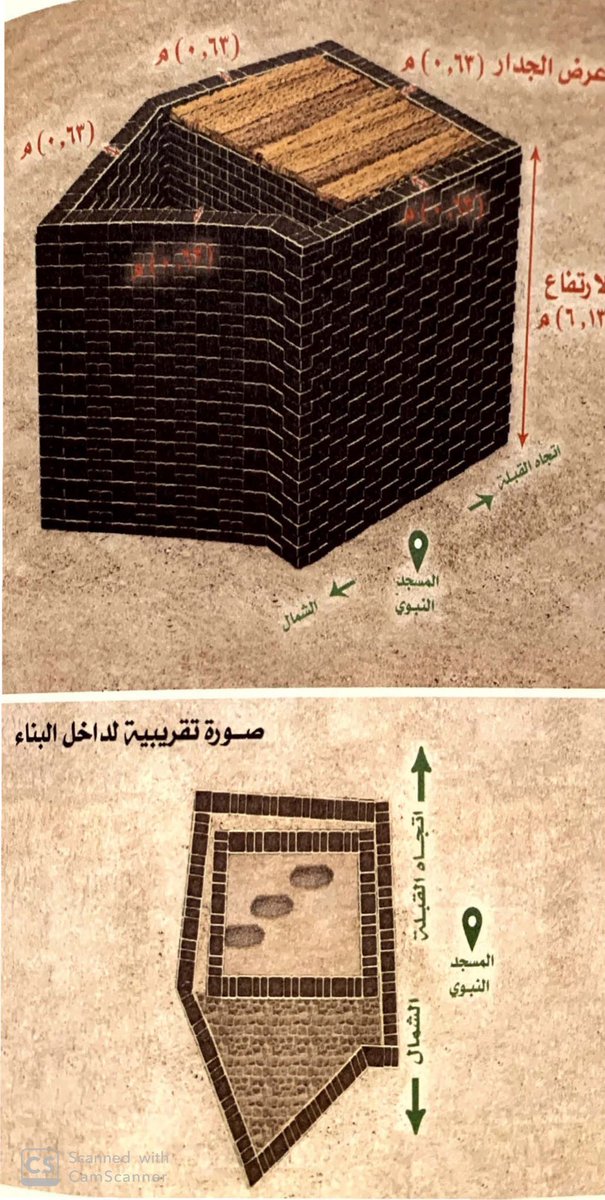 (٠,٦٣) م
عرض الجدار (٠,٦٣) م
(٠,٦٣) م
(٠,٦٣) م
(٠,٦٣) م
لارتفاع
(٦,١٣) م
اتجاه القبلة
المسجد
النبوي
الشمال
صورة تقريبية لداخل البناء
اتجاه القبلة
المسجد
النبوي
الشمال
CS Scanned with
CamScanner